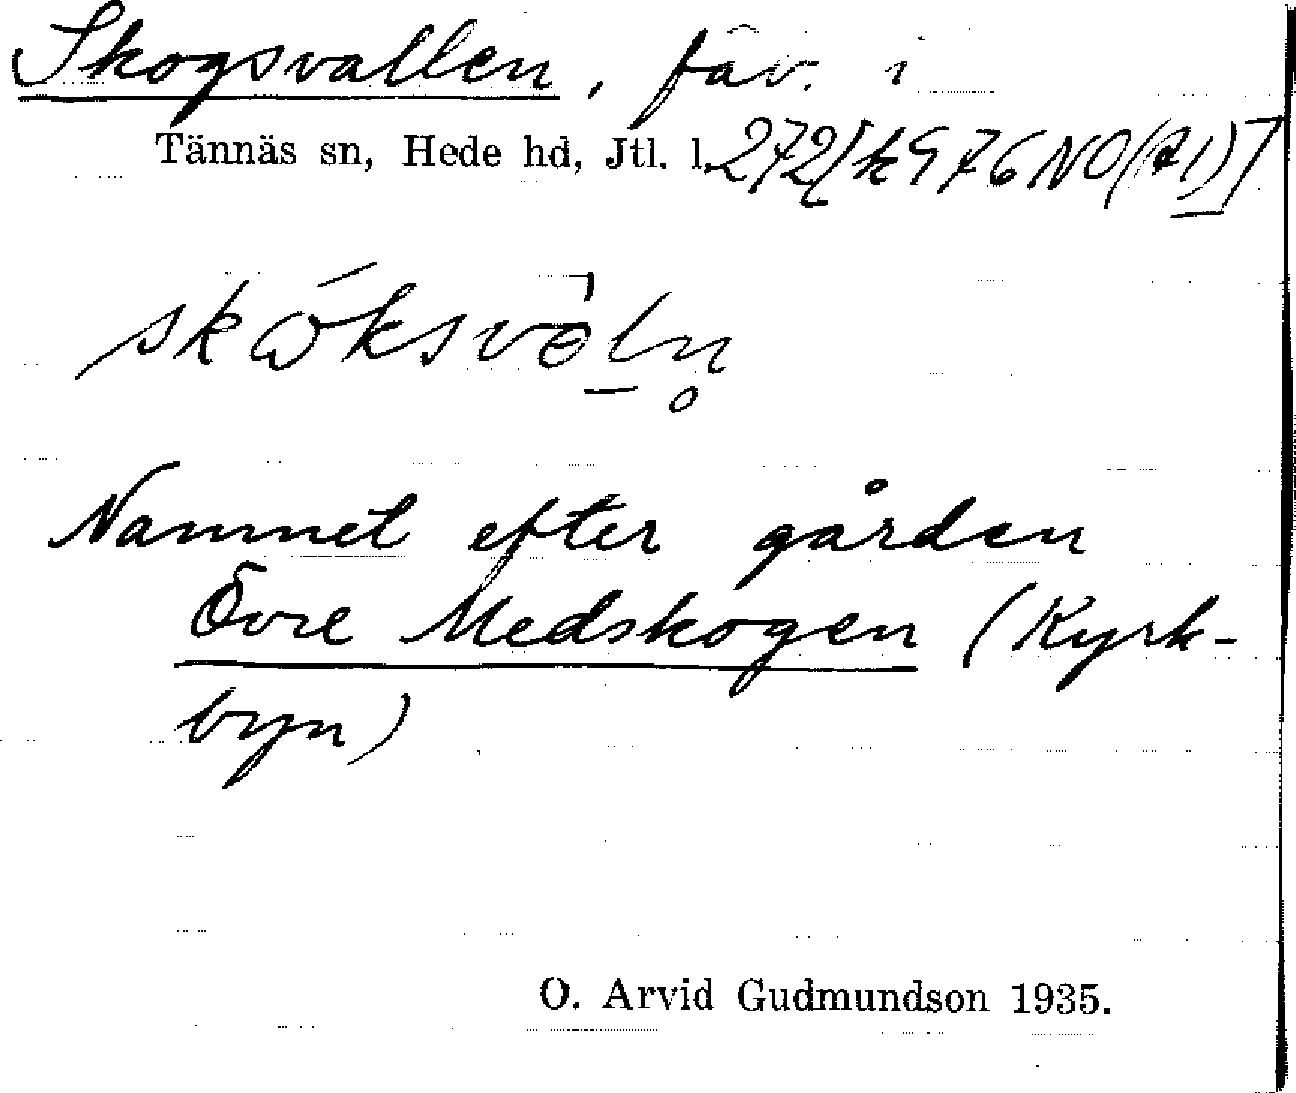 Skogsvallen, fäv. i
Tännäs sn, Hede hd, Jtl. l. 272[k976NO(A1)]
Namnet efter gården
Övre Medskogen (Kyrk-
byn)
O. Arvid Gudmundson 1935.